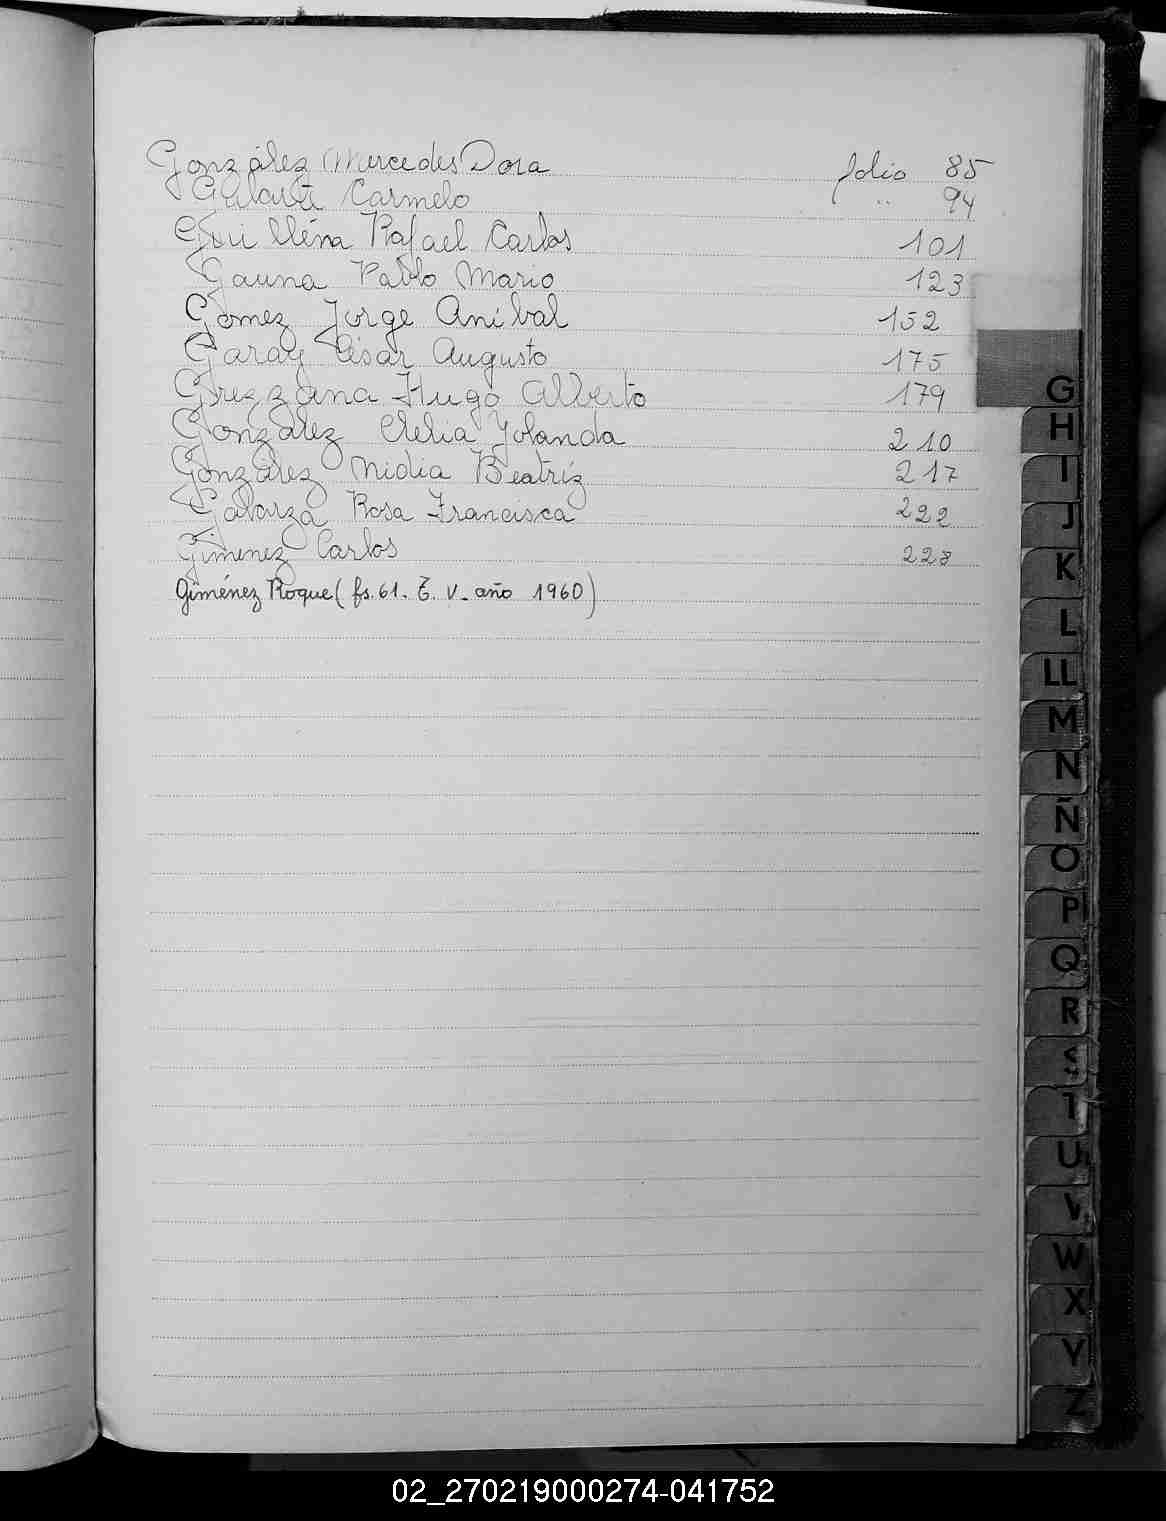 González Mercedes Dora folio 85
Carmelo " 94
Guilléna Rafael Carlos 101
Gauna Pablo Mario 123
Gómez Jorge Aníbal 152
Garay César Augusto 175
Grezzana Hugo Alberto 179
González Clelia Yolanda 210
González Nidia Beatríz 217
Galarza Rosa Francisca 222
Gimenez Carlos 228
Giménez Roque (fs. 61. V. año 1960)
G
H
I
J
K
L
LL
M
N
Ñ
O
P
Q
R
S
T
U
V
W
X
Y
Z
02_270219000274-041752